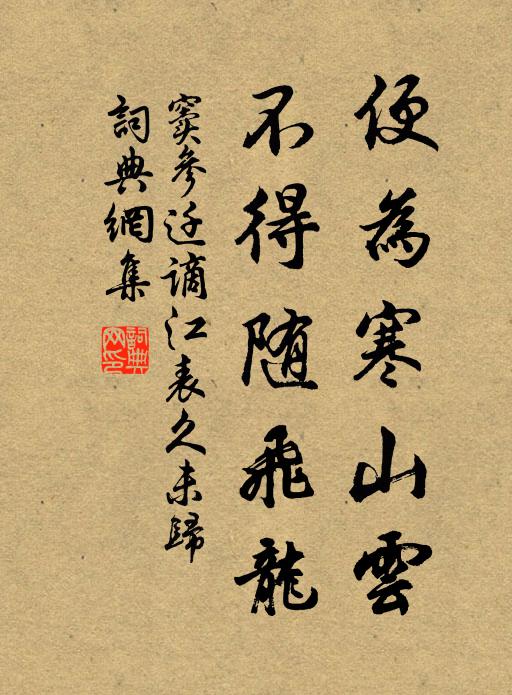 便為寒山雲
不得随飛龍
竇參迁謫江表久未歸
詞典網集
詞典网印